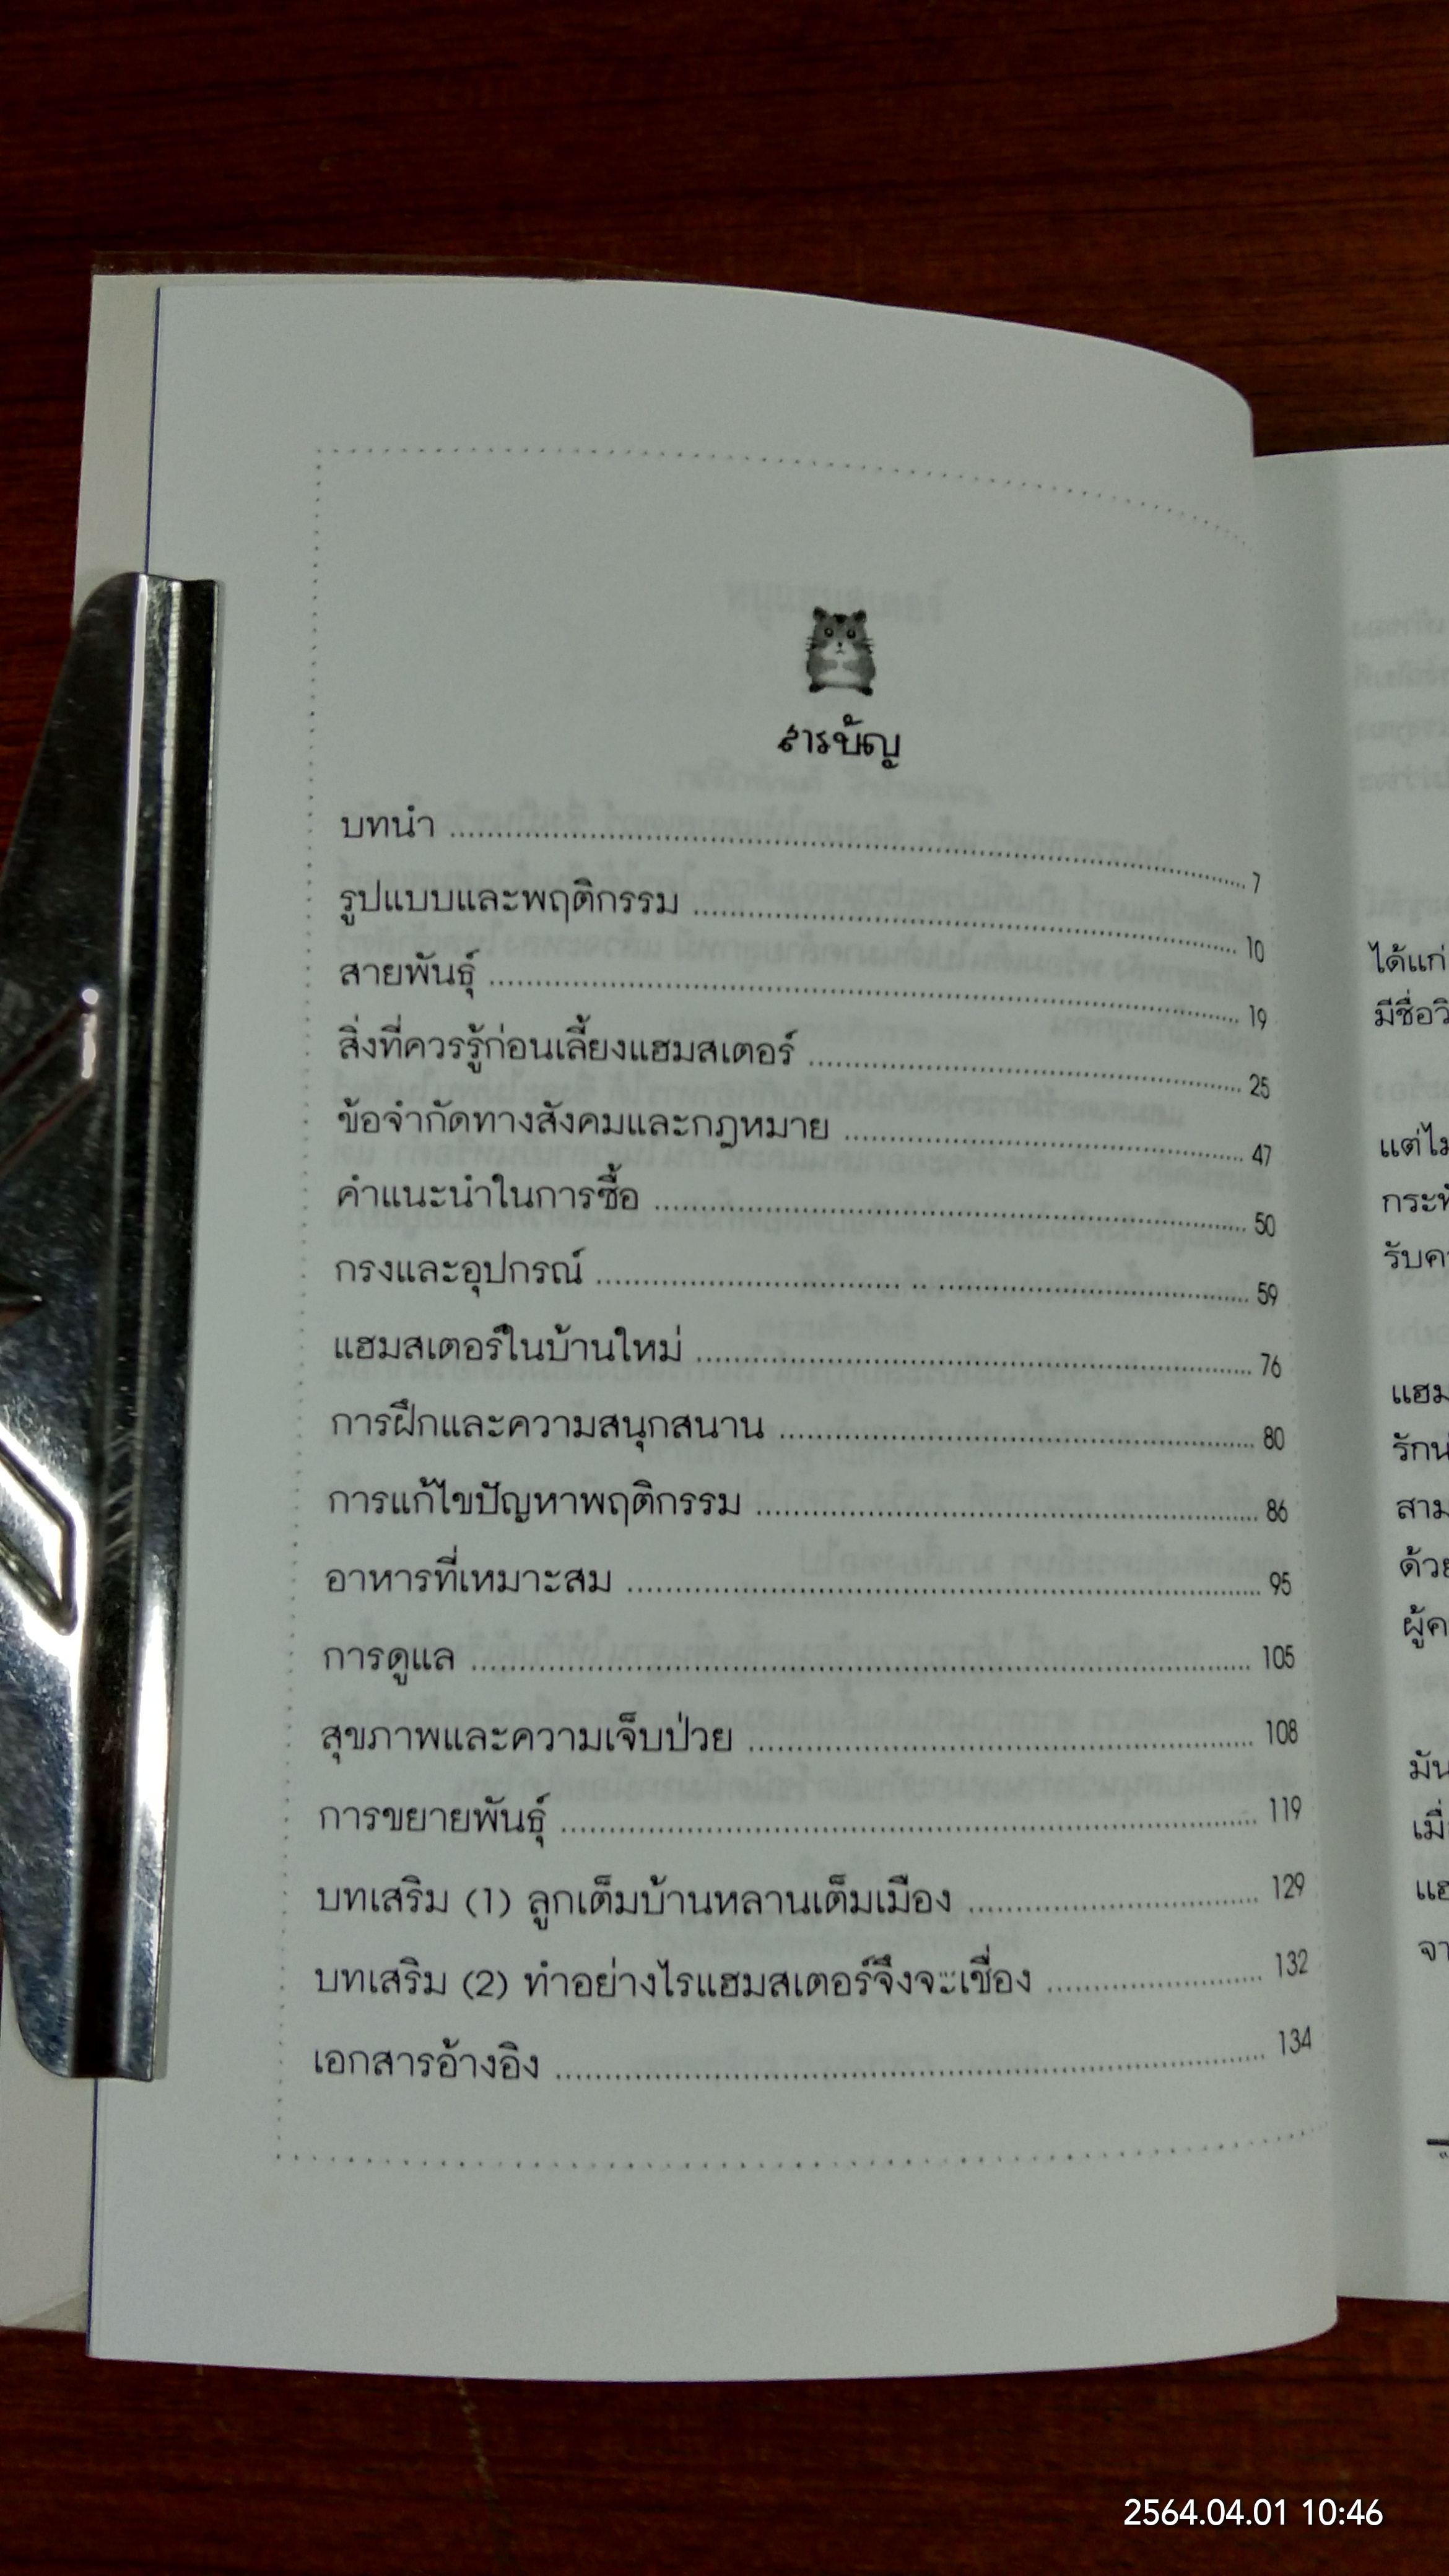 สารบัญ
บทนำ ........ 7
รูปแบบและพฤติกรรม ........ 10
สายพันธุ์ ........ 19
สิ่งที่ควรรู้ก่อนเลี้ยงแฮมสเตอร์ ........ 25
ข้อจำกัดทางสังคมและกฎหมาย ........ 47
คำแนะนำในการซื้อ ........ 50
กรงและอุปกรณ์ ........ 59
แฮมสเตอร์ในบ้านใหม่ ........ 76
การฝึกและความสนุกสนาน ........ 80
การแก้ไขปัญหาพฤติกรรม ........ 86
อาหารที่เหมาะสม ........ 95
การดูแล ........ 105
สุขภาพและความเจ็บป่วย ........ 108
การขยายพันธุ์ ........ 119
บทเสริม (1) ลูกเต็มบ้านหลานเต็มเมือง ........ 129
บทเสริม (2) ทำอย่างไรแฮมสเตอร์จึงจะเชื่อง ........ 132
เอกสารอ้างอิง ........ 134
ได้แก่
มีชื่อวิ
แต่ไม
รับคว
แฮม
รักน
สาม
ด้วย
ผู้ค
มัน
2564.04.01 10:46